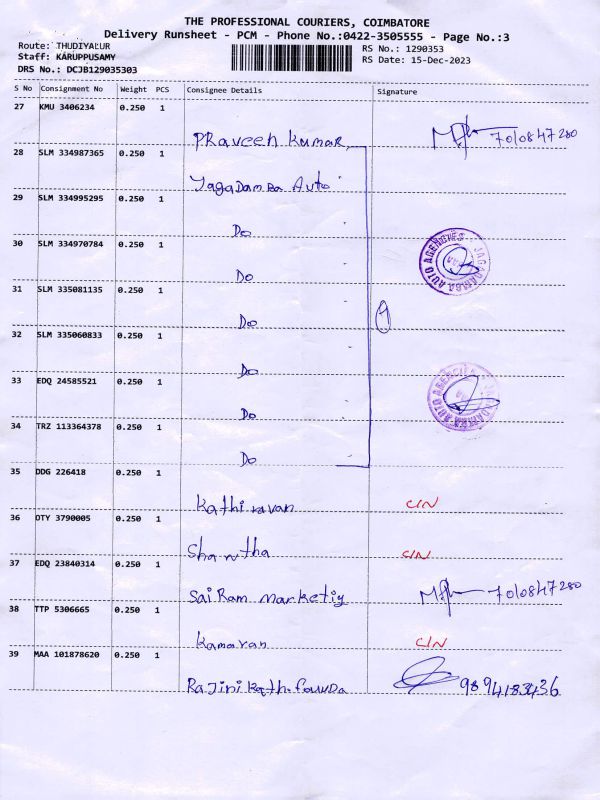 THE PROFESSIONAL COURIERS, COIMBATORE
Delivery Runsheet - PCM - Phone No.:0422-3505555 - Page No.:3
Route: THUDIYALUR
Staff: KARUPPUSAMY
DRS No.: DCJB129035303
RS No.: 1290353
RS Date: 15-Dec-2023
S No Consignment No Weight PCS Consignee Details Signature
27 KMU 3406234 0.250 1
Praveen kumar 7010847280
28 SLM 334987365 0.250 1
Jagadamba Auto
29 SLM 334995295 0.250 1
Do
30 SLM 334970784 0.250 1
Do
JAGADAMBA AUTO AGENCIES
31 SLM 335081135 0.250 1
Do
32 SLM 335060833 0.250 1
Do
33 EDQ 24585521 0.250 1
Do
JAGADAMBA AUTO AGENCIES
34 TRZ 113364378 0.250 1
Do
35 DDG 226418 0.250 1
Kathiravan C/N
36 OTY 3790005 0.250 1
Shantha C/N
37 EDQ 23840314 0.250 1
Sai Ram marketig 7010847280
38 TTP 5306665 0.250 1
Kamaran C/N
39 MAA 101878620 0.250 1
9894183436